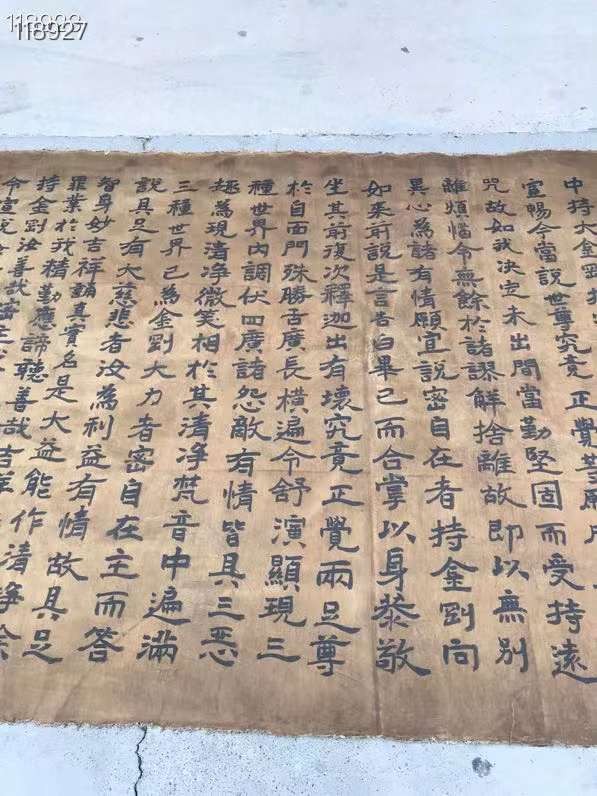 118927
中持大金剛持
宣暢今當說世尊究竟正覺誓願
咒故如我決定未出間當勤堅固而受持遠
離煩惱令無餘於諸謬解捨離故即以無別
異心為諸有情願宣說密自在者持金剛向
如來前說是言告白畢已而合掌以身恭敬
坐其前復次釋迦出有壞究竟正覺兩足尊
於自面門殊勝舌廣長橫遍令舒演顯現三
種世界內調伏四廣諸怨敵有情皆具三惡
趣為現清淨微笑相於其清淨梵音中遍滿
三種世界已為金剛大力者密自在主而答
說具足有大慈悲者汝為利益有情故具足
智身妙吉祥誦其實名是大益能作清淨除
罪業於我精勤應諦聽善哉吉祥
持金剛汝善哉
令宣說